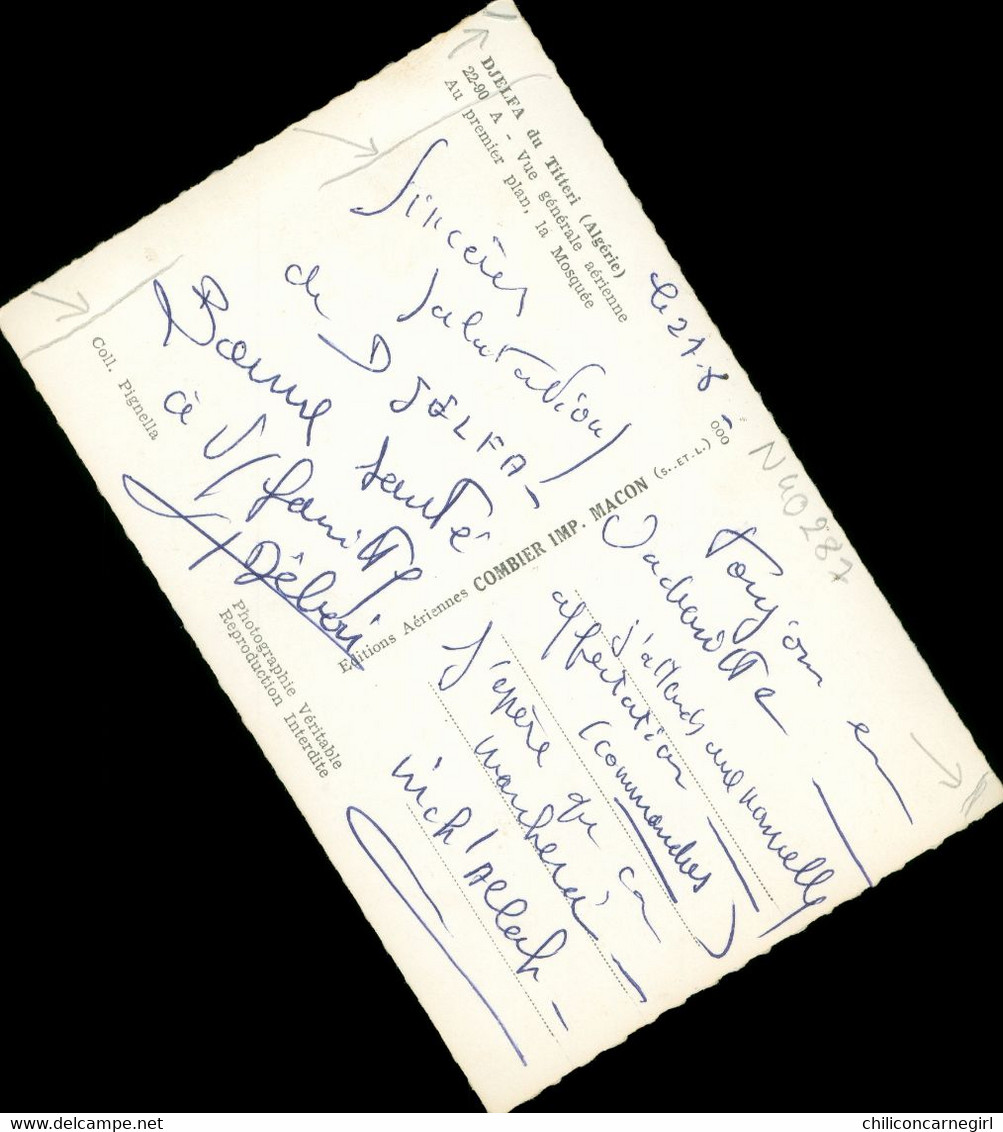 DJELFA du Titteri (Algérie)
22-90 A - Vue générale aérienne
Au premier plan, la Mosquée
Sincères
Salutations
de DJELFA -
Bonne santé
à V/ famille
Coll. Pignella
Photographie Véritable
Reproduction Interdite
Editions Aériennes COMBIER IMP. MACON (S.-ET-L.)
000
N40287
Le 27-8
Toujours en
j'attends une nouvelle
affectation
(commandos)
J'espère que ça
marchera -
inch'Allah -
delcampe.net
chiliconcarnegirl